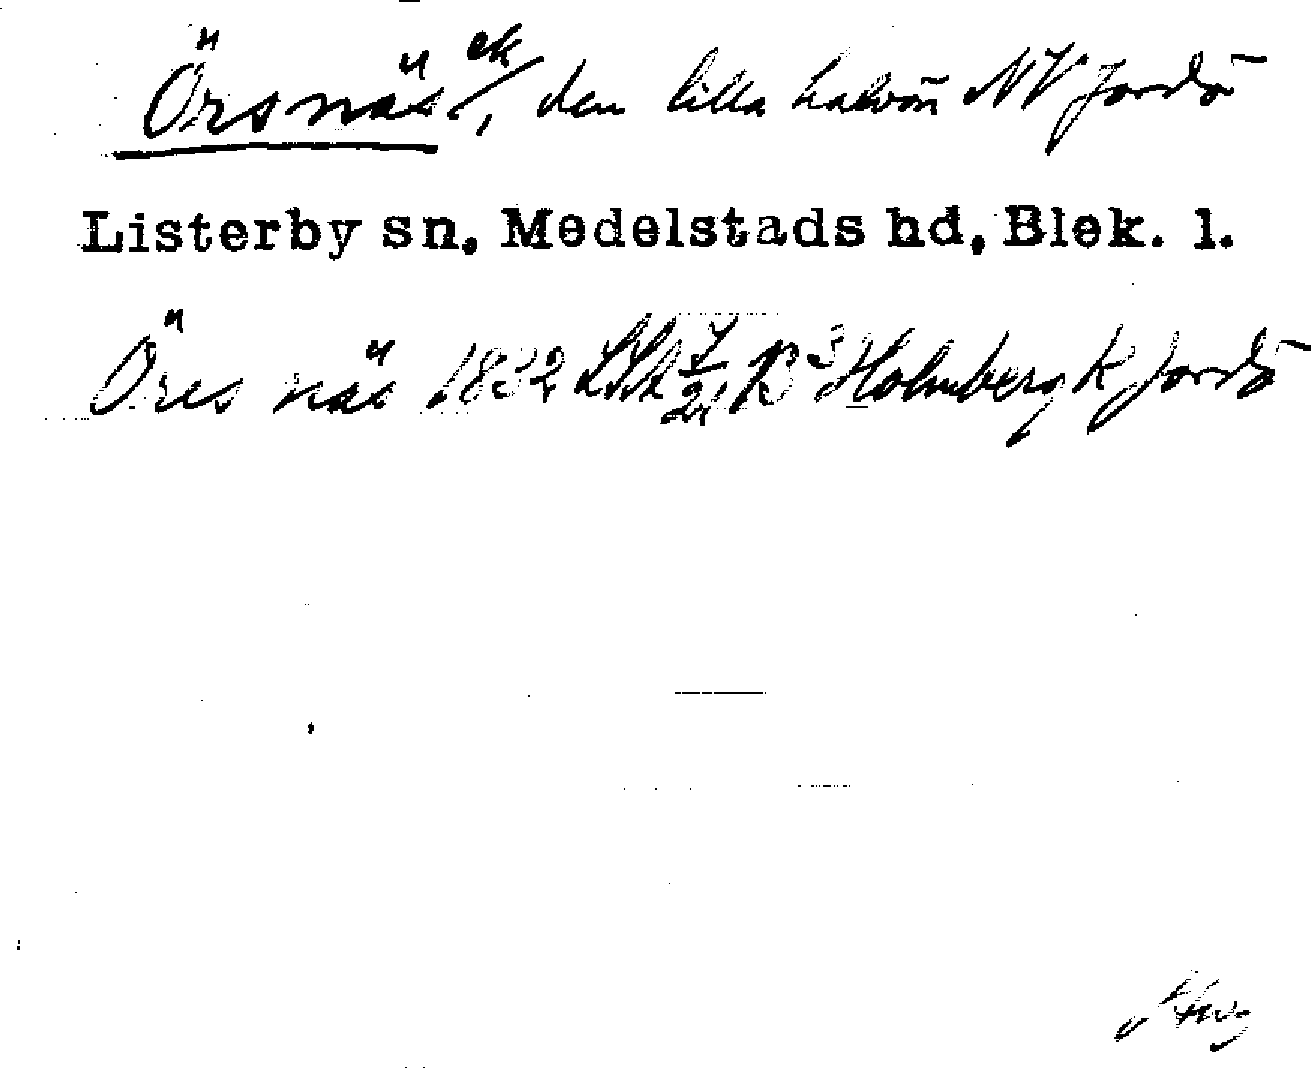 Örsnäs ek, den lilla halvön NV Jordö
Listerby sn, Medelstads hd, Blek. l.
Öres näs 1832 LSA B³ Holmberg K Jordö